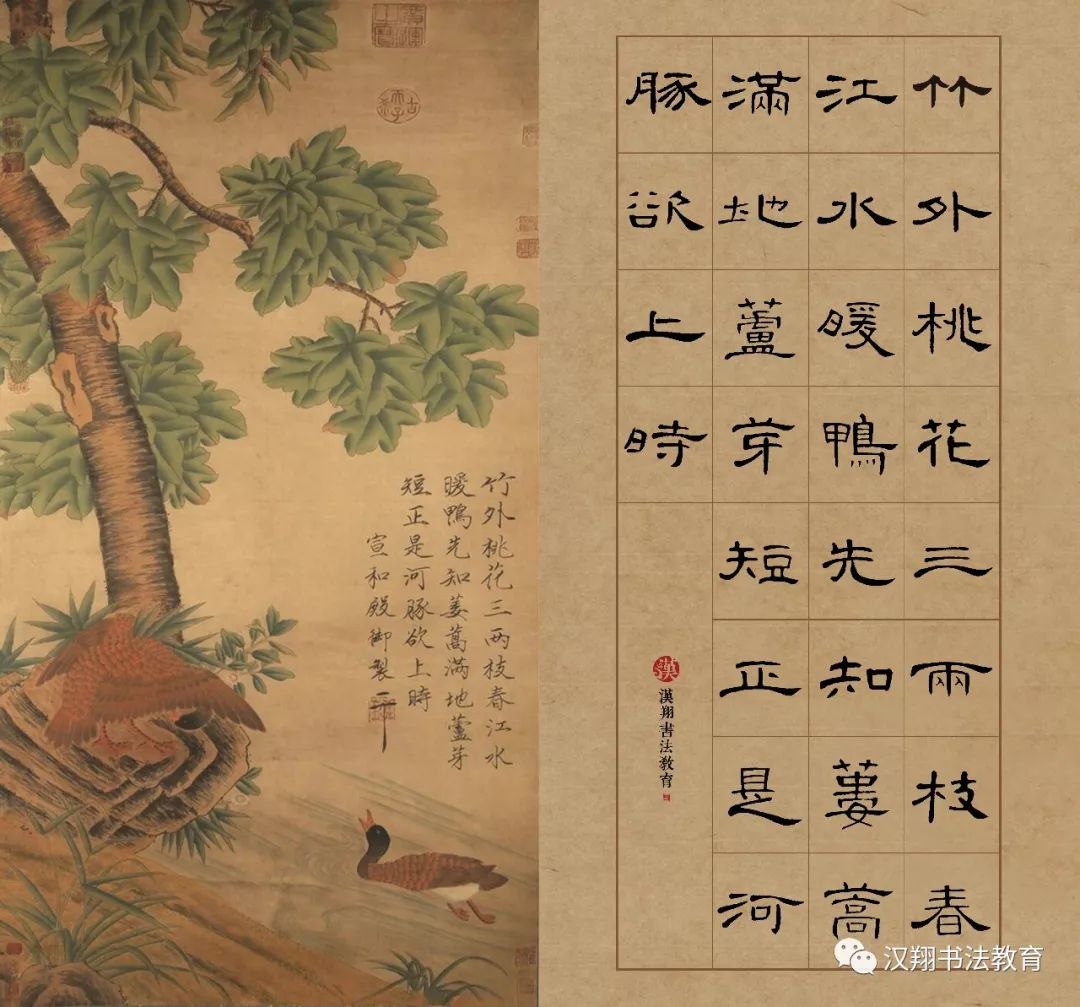 竹外桃花三两枝春江水
暖鴨先知蔞蒿滿地蘆芽
短正是河豚欲上時
宣和殿御製
竹外桃花三兩枝春
江水暖鴨先知蔞蒿
滿地蘆芽短正是河
豚欲上時
漢
漢翔書法教育
汉翔书法教育